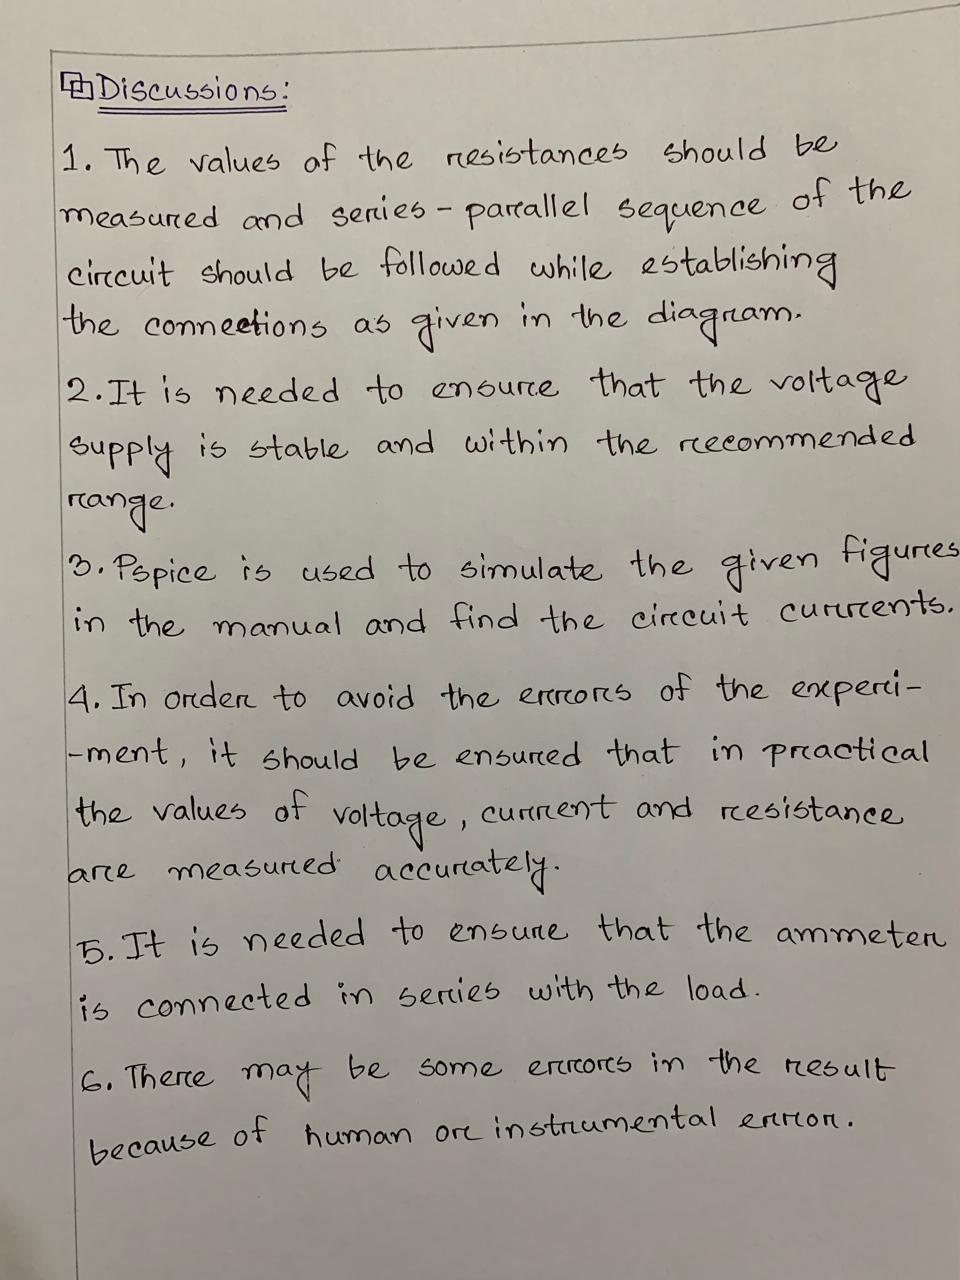 Discussions:
1. The values of the resistances should be
measured and series - parallel sequence of the
circuit should be followed while establishing
the connections as given in the diagram.
2. It is needed to ensure that the voltage
supply is stable and within the recommended
range.
3. Pspice is used to simulate the given figures
in the manual and find the circuit currents.
4. In order to avoid the errors of the experi-
-ment, it should be ensured that in practical
the values of voltage, current and resistance
are measured accurately.
5. It is needed to ensure that the ammeter
is connected in series with the load.
6. There may be some errors in the result
because of human or instrumental error.